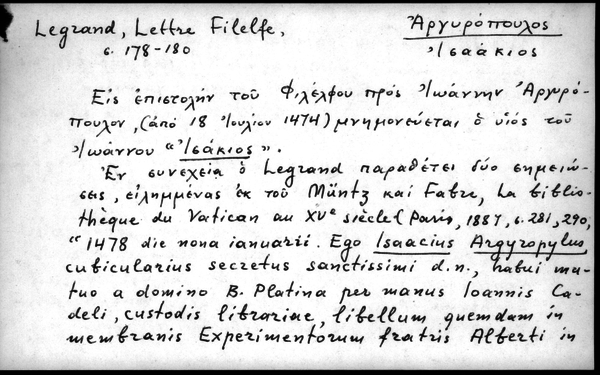 Legrand, Lettre Filelfe,
Ἀργυρόπουλος
σ. 178-180
Ἰσαάκιος
Εἰς ἐπιστολήν τοῦ Φιλέλφου πρός Ἰωάννην Ἀργυρό-
πουλον, (ἀπό 18 Ἰουλίου 1474) μνημονεύεται ὁ υἱός τοῦ
Ἰωάννου "Ἰσάκιος".
Ἐν συνεχεία ὁ Legrand παραθέτει δύο σημειώ-
σεις, εἰλημμένας ἐκ τοῦ Müntz καί Fabre, La biblio-
thèque du Vatican au XVe siècle (Paris, 1887, σ. 281, 290,
"1478 die nona ianuarii. Ego Isaacius Argyropylus,
cubicularius secretus sanctissimi d.n., habui mu-
tuo a domino B. Platina per manus Ioannis Ca-
deli, custodis librariae, libellum quemdam in
membranis Experimentorum fratris Alberti in